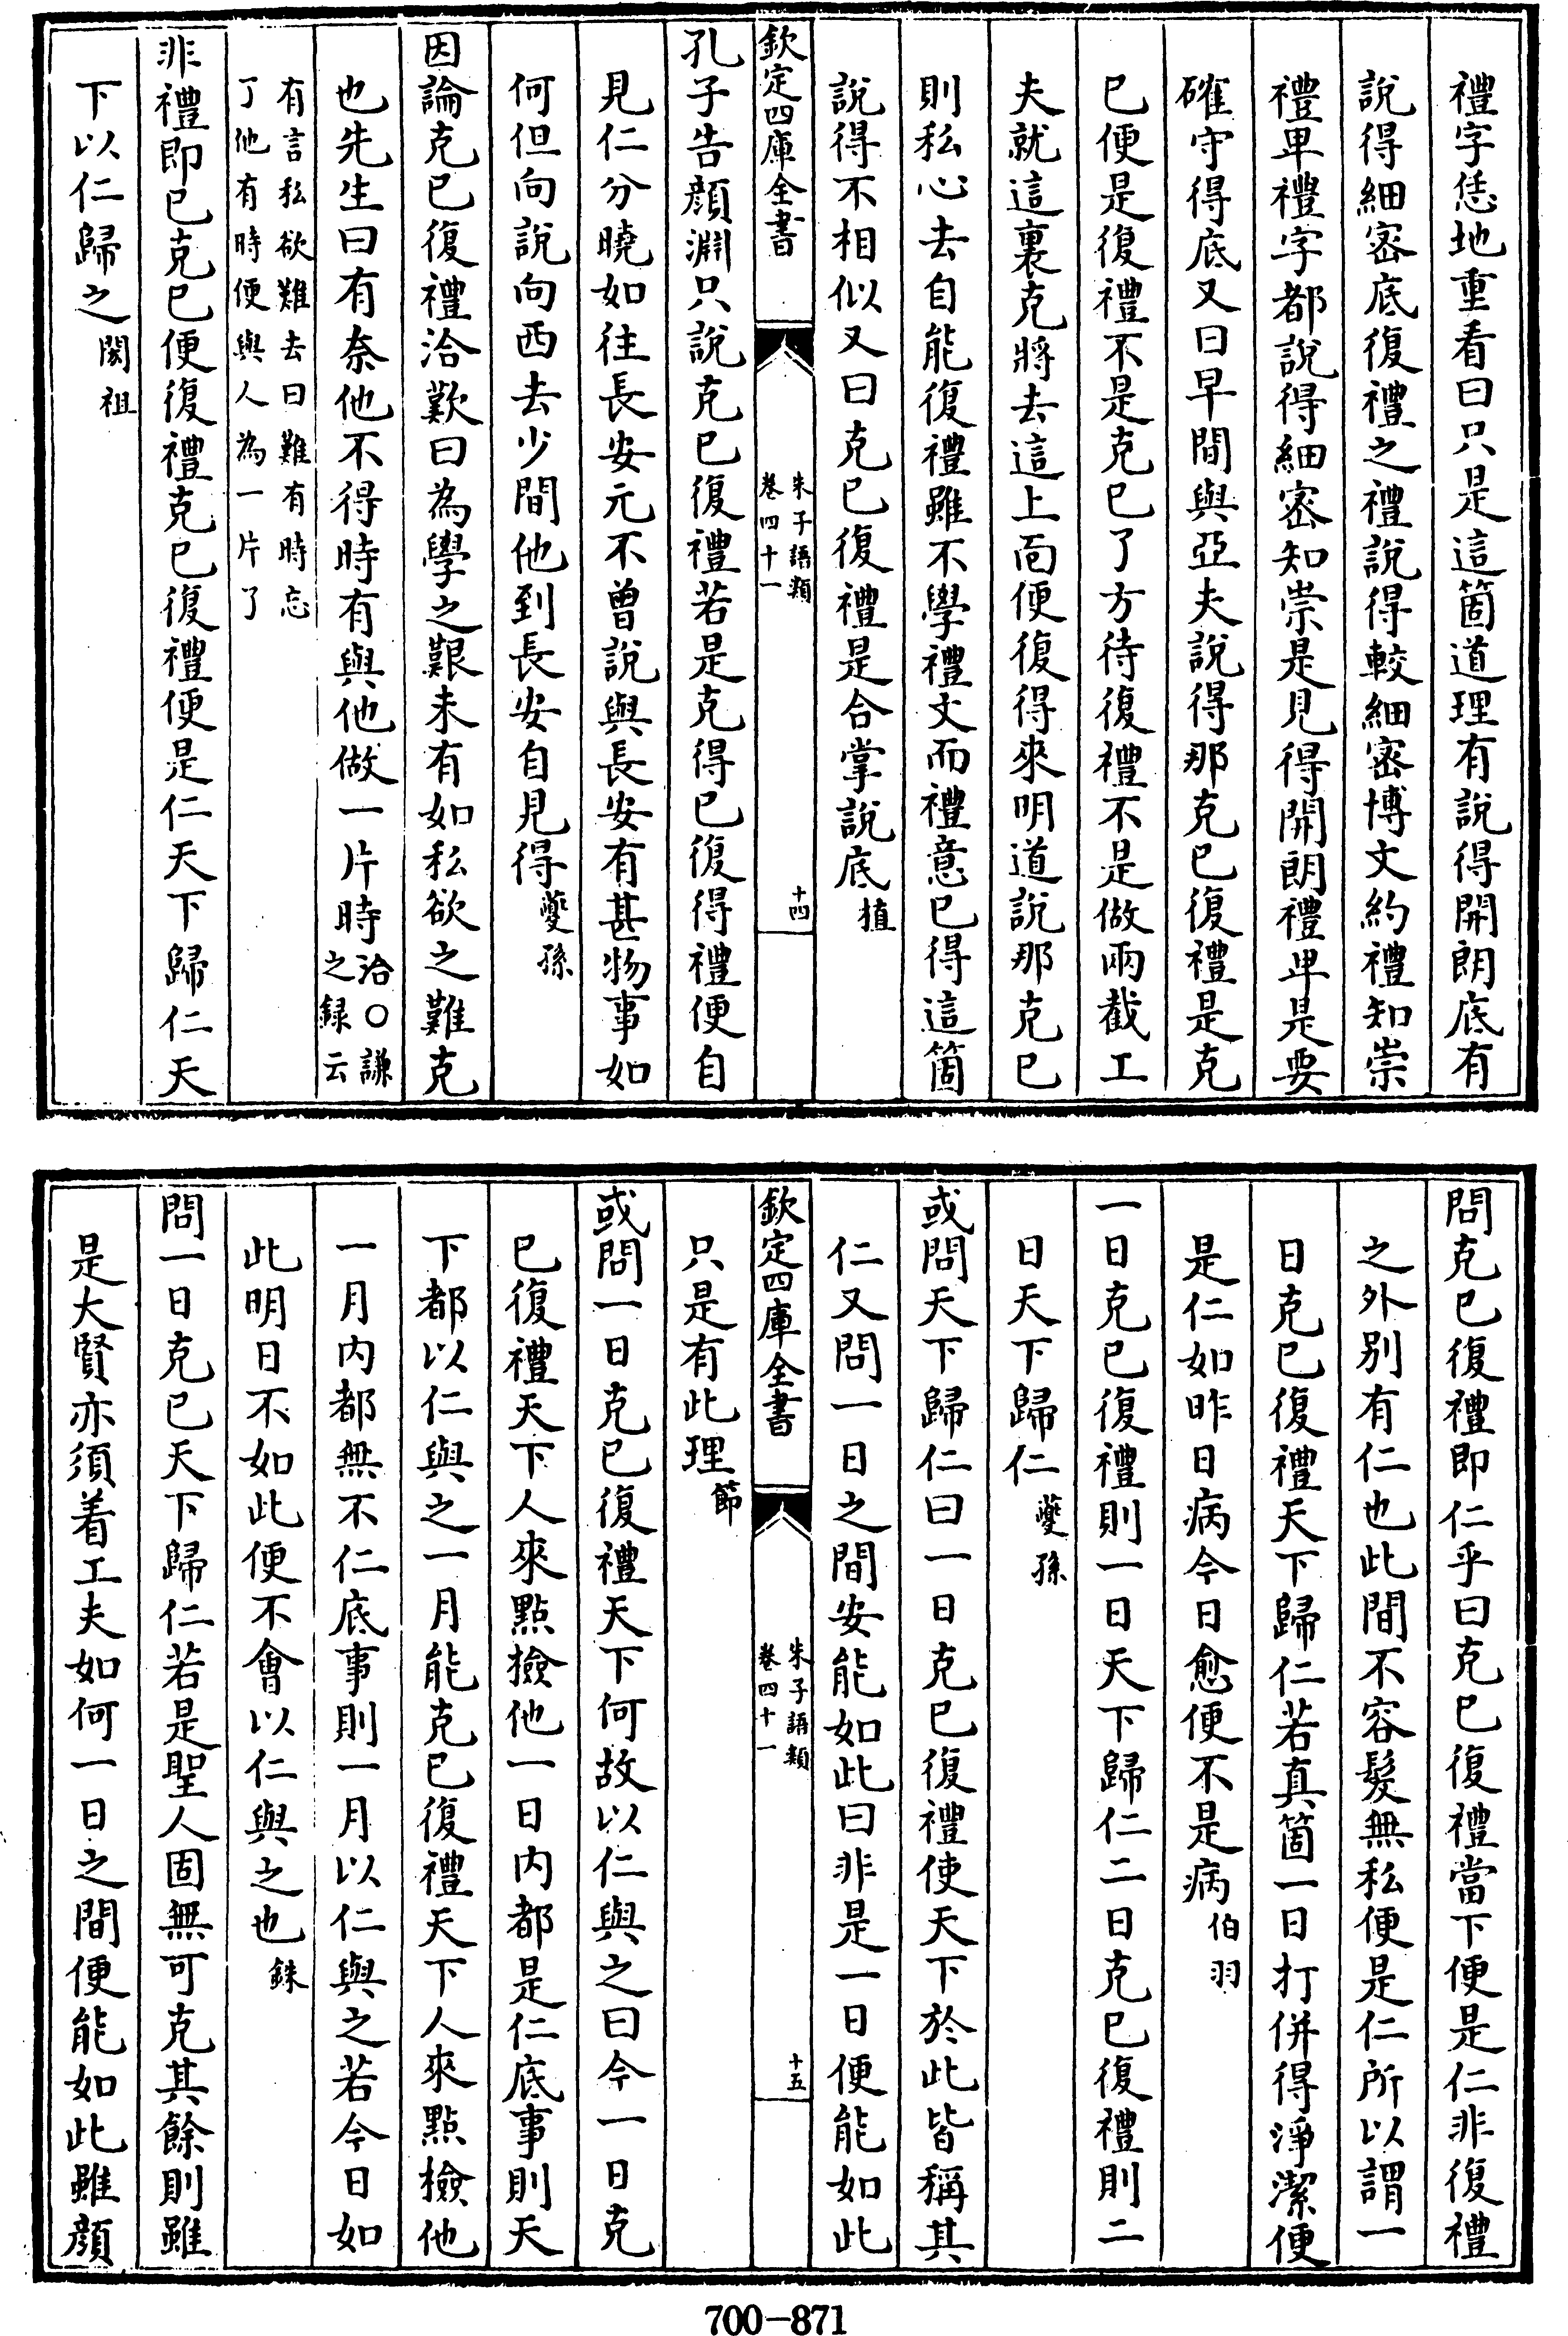 禮字恁地重看曰只是這箇道理有說得開朗底有
說得細密底復禮之禮說得較細密博文約禮知崇
禮卑禮字都說得細密知崇是見得開朗禮卑是要
確守得底又曰早間與亞夫說得那克已復禮是克
已便是復禮不是克已了方待復禮不是做兩截工
夫就這裏克將去這上面便復得來明道說那克已
則私心去自能復禮雖不學禮文而禮意已得這箇
說得不相似又曰克已復禮是合掌說底植
欽定四庫全書
朱子語類
卷四十一
十四
孔子告顏淵只說克已復禮若是克得已復得禮便自
見仁分曉如往長安元不曾說與長安有甚物事如
何但向說向西去少間他到長安自見得䕫孫
因論克已復禮洽歎曰為學之艱未有如私欲之難克
也先生曰有奈他不得時有與他做一片時洽○謙
之録云
有言私欲難去曰難有時忘
了他有時便與人為一片了
非禮即已克已便復禮克已復禮便是仁天下歸仁天
下以仁歸之閎祖
問克已復禮即仁乎曰克已復禮當下便是仁非復禮
之外别有仁也此間不容髮無私便是仁所以謂一
日克已復禮天下歸仁若真箇一日打併得淨潔便
是仁如昨日病今日愈便不是病伯羽
一日克已復禮則一日天下歸仁二日克已復禮則二
日天下歸仁䕫孫
或問天下歸仁曰一日克已復禮使天下於此皆稱其
仁又問一日之間安能如此曰非是一日便能如此
只是有此理節
欽定四庫全書
朱子語類
卷四十一
十五
或問一日克已復禮天下何故以仁與之曰今一日克
已復禮天下人來點檢他一日内都是仁底事則天
下都以仁與之一月能克已復禮天下人來點檢他
一月内都無不仁底事則一月以仁與之若今日如
此明日不如此便不會以仁與之也銖
問一日克已天下歸仁若是聖人固無可克其餘則雖
是大賢亦須着工夫如何一日之間便能如此雖顏
700-871